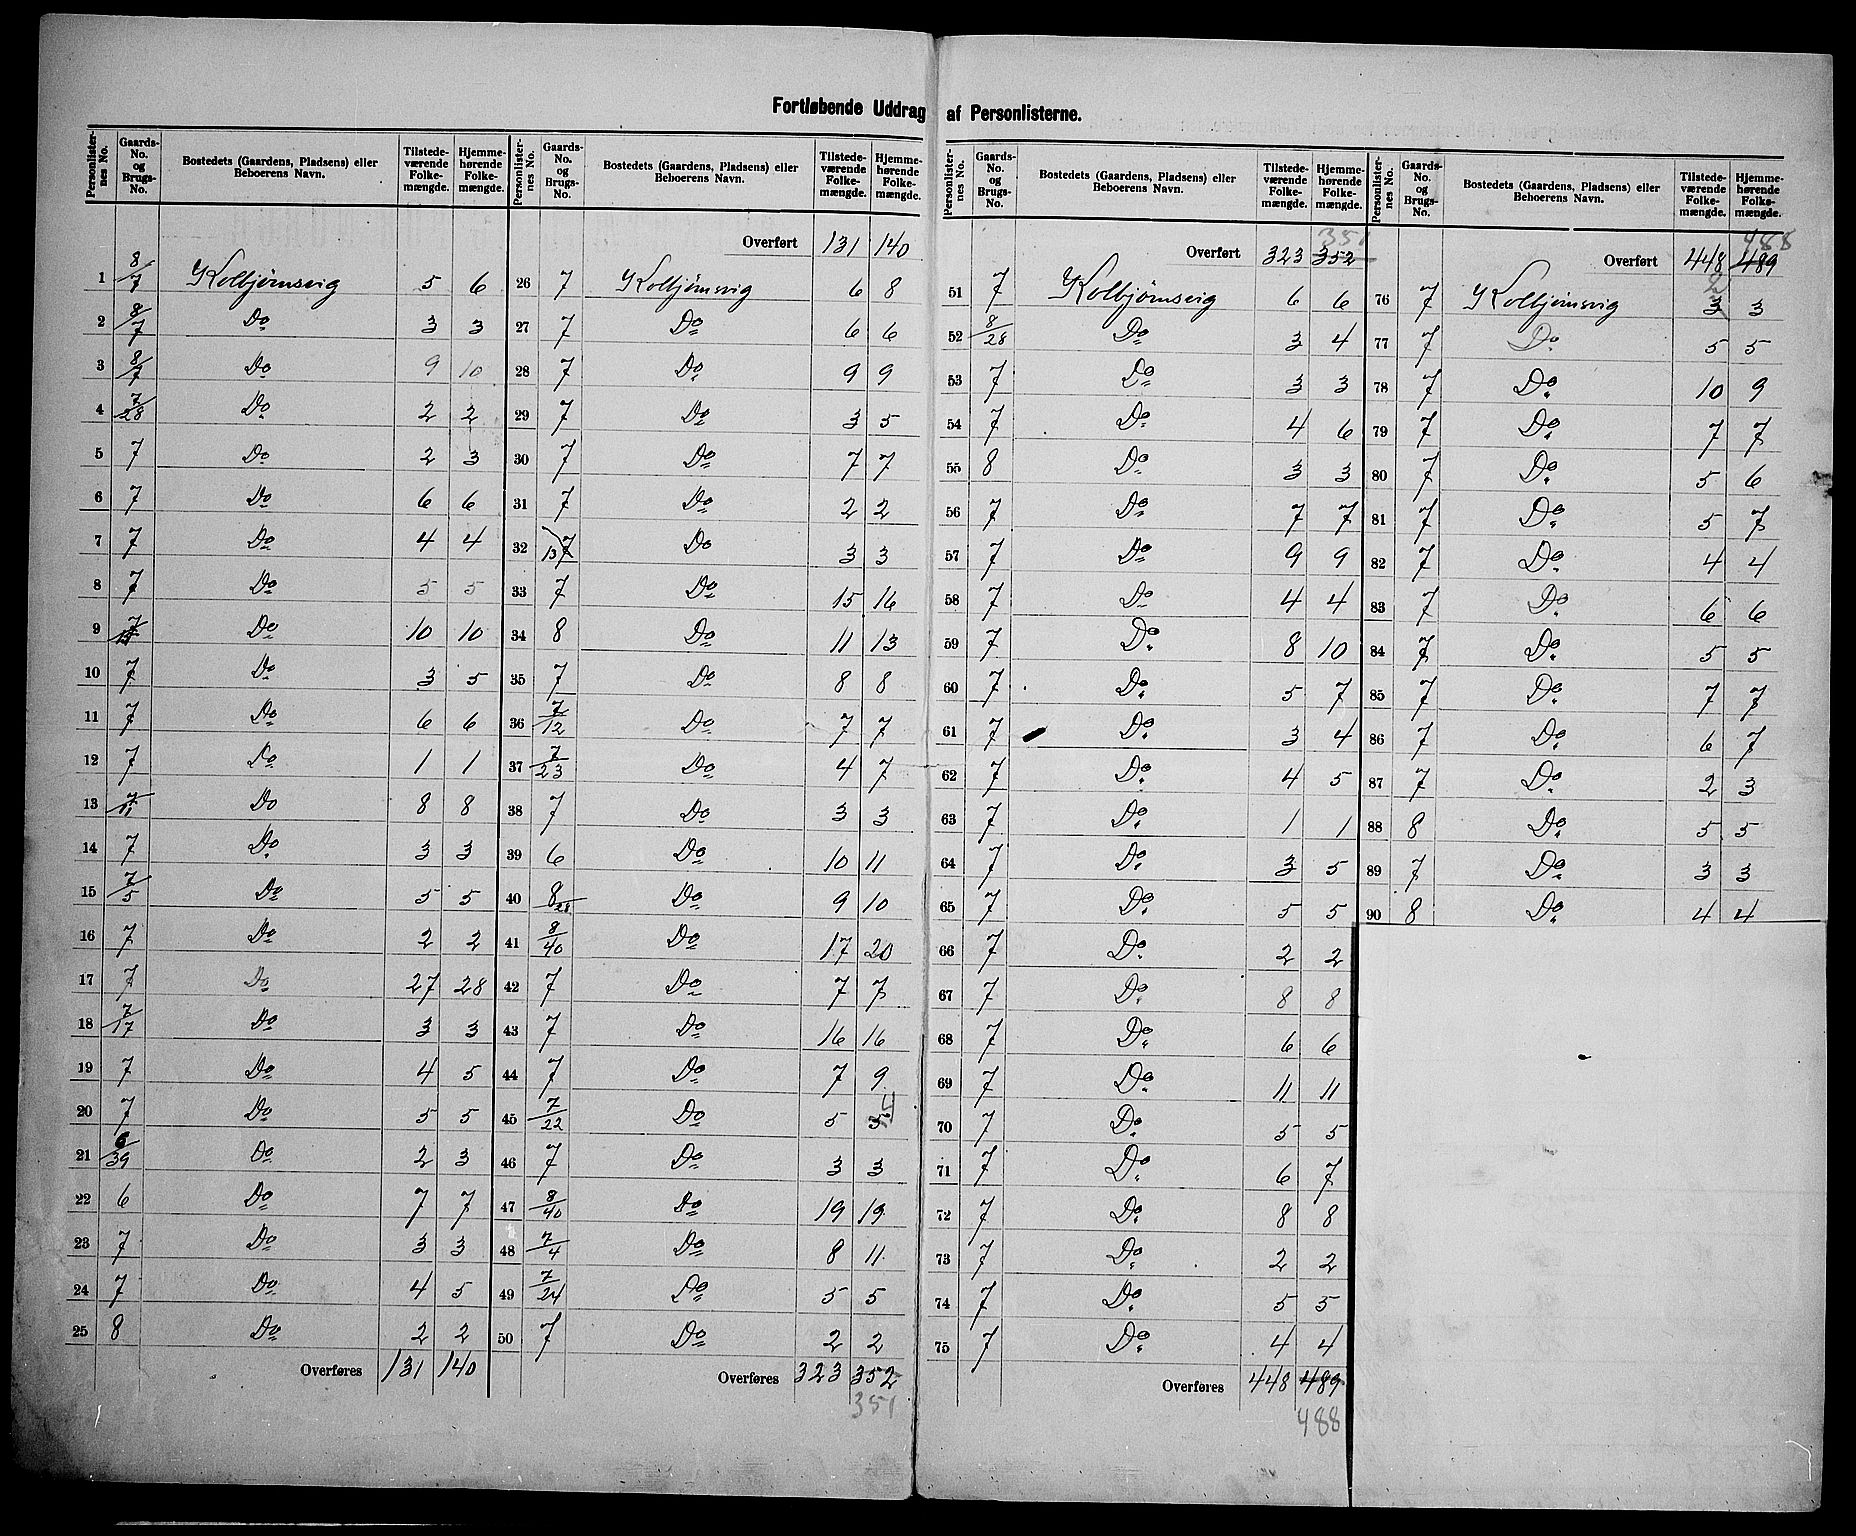 Fortløbende Uddrag af Personlisterne.
Personlister-nes No. | Gaards-No. og Brugs-No. | Bostedets (Gaardens, Pladsens) eller Beboerens Navn. | Tilstede-værende Folke-mængde. | Hjemme-hørende Folke-mængde.
1 8/7 Kolbjørnsvig 5 6
2 8/7 Do 3 3
3 8/7 Do 9 10
4 7/28 Do 2 2
5 7 Do 2 3
6 7 Do 6 6
7 7 Do 4 4
8 7 Do 5 5
9 Do 10 10
10 7 Do 3 5
11 7 Do 6 6
12 7 Do 1 1
13 7/11 Do 8 8
14 7 Do 3 3
15 7/5 Do 5 5
16 7 Do 2 2
17 7 Do 27 28
18 7/17 Do 3 3
19 7 Do 4 5
20 7 Do 5 5
21 6/39 Do 2 3
22 6 Do 7 7
23 7 Do 3 3
24 7 Do 4 5
25 8 Do 2 2
Overføres 131 140
Personlister-nes No. | Gaards-No. og Brugs-No. | Bostedets (Gaardens, Pladsens) eller Beboerens Navn. | Tilstede-værende Folke-mængde. | Hjemme-hørende Folke-mængde.
Overført 131 140
26 7 Kolbjørnsvig 6 8
27 7 Do 6 6
28 7 Do 9 9
29 7 Do 3 5
30 7 Do 7 7
31 7 Do 2 2
32 7 13 Do 3 3
33 7 Do 15 16
34 8 Do 11 13
35 7 Do 8 8
36 7/12 Do 7 7
37 7/23 Do 4 7
38 7 Do 3 3
39 6 Do 10 11
40 8/28 Do 9 10
41 8/40 Do 17 20
42 7 Do 7 7
43 7 Do 16 16
44 7 Do 7 9
45 7/22 Do 5 5 4
46 7 Do 3 3
47 8/40 Do 19 19
48 7/4 Do 8 11
49 7/24 Do 5 5
50 7 Do 2 2
Overføres 323 352
351
Personlister-nes No. | Gaards-No. og Brugs-No. | Bostedets (Gaardens, Pladsens) eller Beboerens Navn. | Tilstede-værende Folke-mængde. | Hjemme-hørende Folke-mængde.
351
Overført 323 352
51 7 Kolbjørnsvig 6 6
52 8/28 Do 3 4
53 7 Do 3 3
54 7 Do 4 6
55 8 Do 3 3
56 7 Do 7 7
57 7 Do 9 9
58 7 Do 4 4
59 7 Do 8 10
60 7 Do 5 7
61 7 Do 3 4
62 7 Do 4 5
63 7 Do 1 1
64 7 Do 3 5
65 7 Do 5 5
66 7 Do 2 2
67 7 Do 8 8
68 7 Do 6 6
69 7 Do 11 11
70 7 Do 5 5
71 7 Do 6 7
72 7 Do 8 8
73 7 Do 2 2
74 7 Do 5 5
75 7 Do 4 4
Overføres 448 489
488
Personlister-nes No. | Gaards-No. og Brugs-No. | Bostedets (Gaardens, Pladsens) eller Beboerens Navn. | Tilstede-værende Folke-mængde. | Hjemme-hørende Folke-mængde.
488
Overført 448 489
76 7 Kolbjørnsvig 3 2 3
77 7 Do 5 5
78 7 Do 10 9
79 7 Do 7 7
80 7 Do 5 6
81 7 Do 5 7
82 7 Do 4 4
83 7 Do 6 6
84 7 Do 5 5
85 7 Do 7 7
86 7 Do 6 7
87 7 Do 2 3
88 8 Do 5 5
89 7 Do 3 3
90 8 Do 4 4